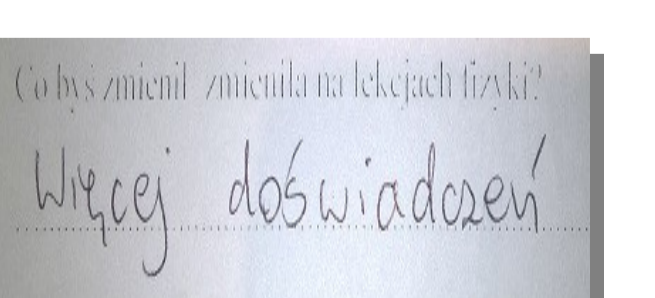 Co byś zmienił zmieniła na lekcjach fizyki?
Więcej doświadczeń